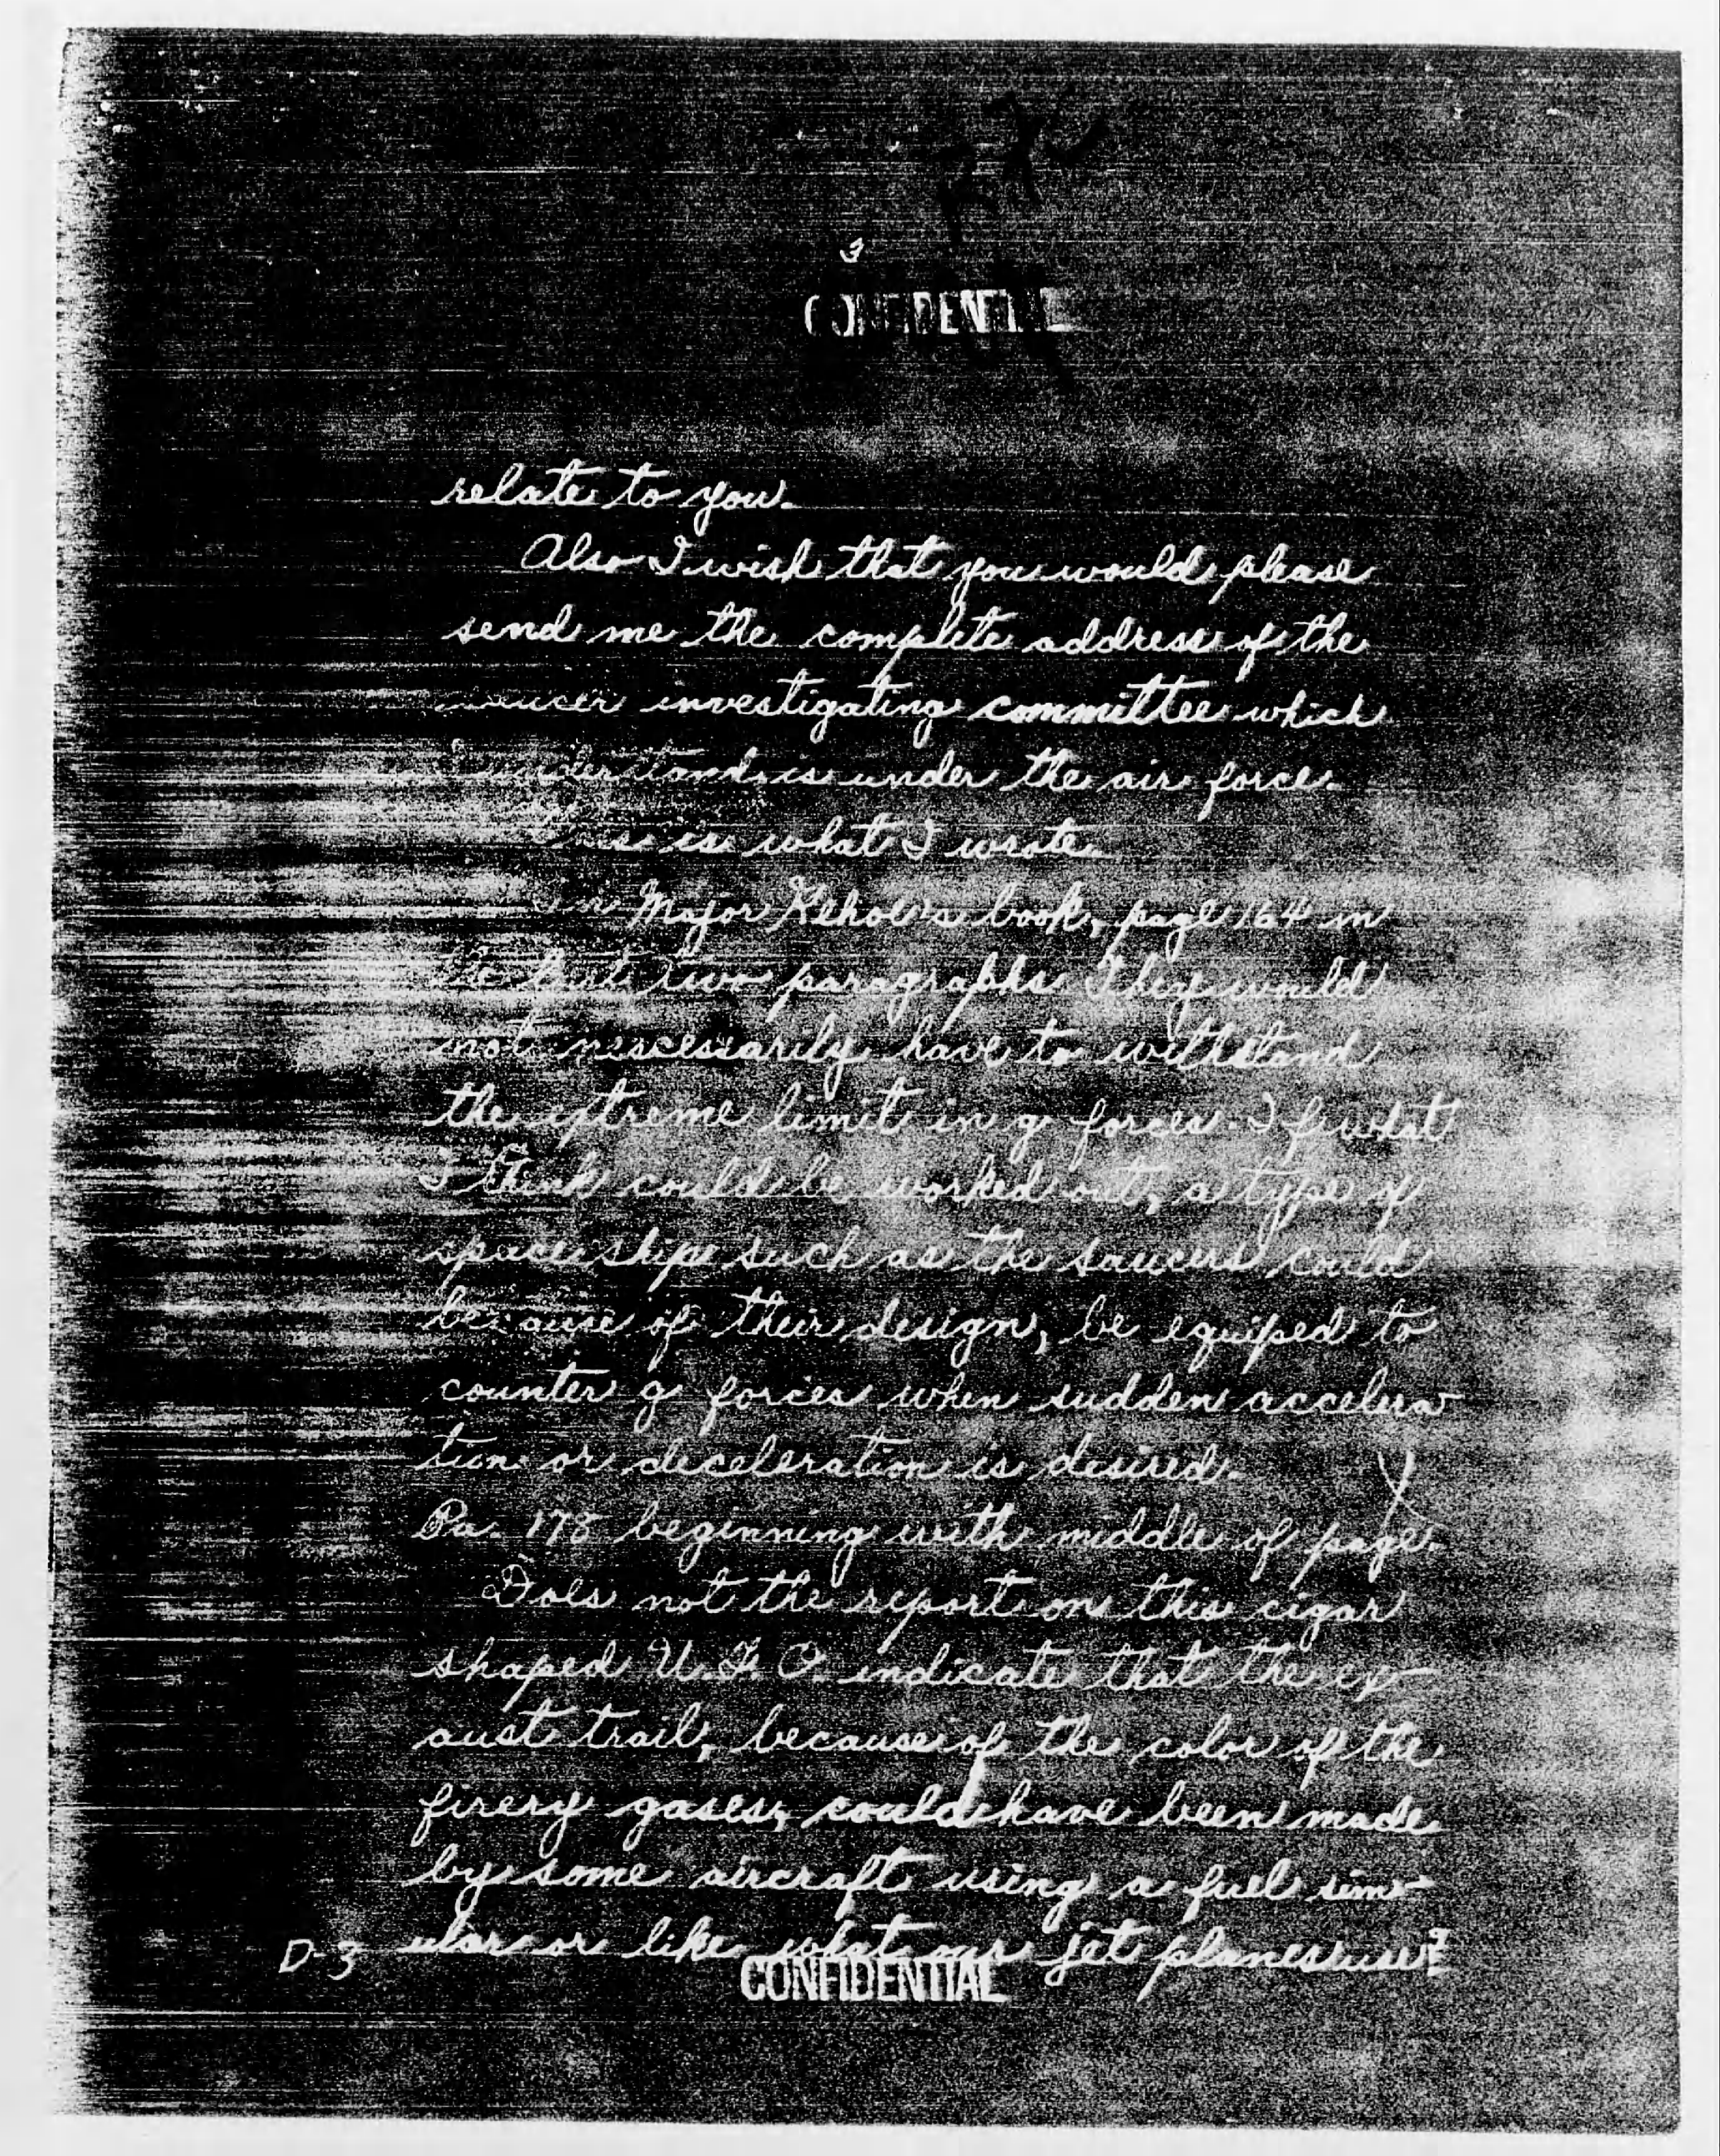 3
CONFIDENTIAL
relate to you.
Also I wish that you would please
send me the complete address of the
saucer investigating committee which
understand is under the air force.
is what I wrote.
In Major Kehoe's book, page 164 in
two paragraphs They would
not nescessarily have to withstand
the extreme limit in g forces. If what
I think could be worked out, a type of
space ship such as the saucers could
because of their design, be equiped to
counter g forces when sudden accelera
tion or deceleration is desired.
Pa. 178 beginning with middle of page.
Does not the report on this cigar
shaped U.F.O. indicate that the ex-
aust trail, because of the color of the
firery gases, could have been made
by some aircraft using a fuel sim-
ular or like what our jet planes use?
D-3
CONFIDENTIAL